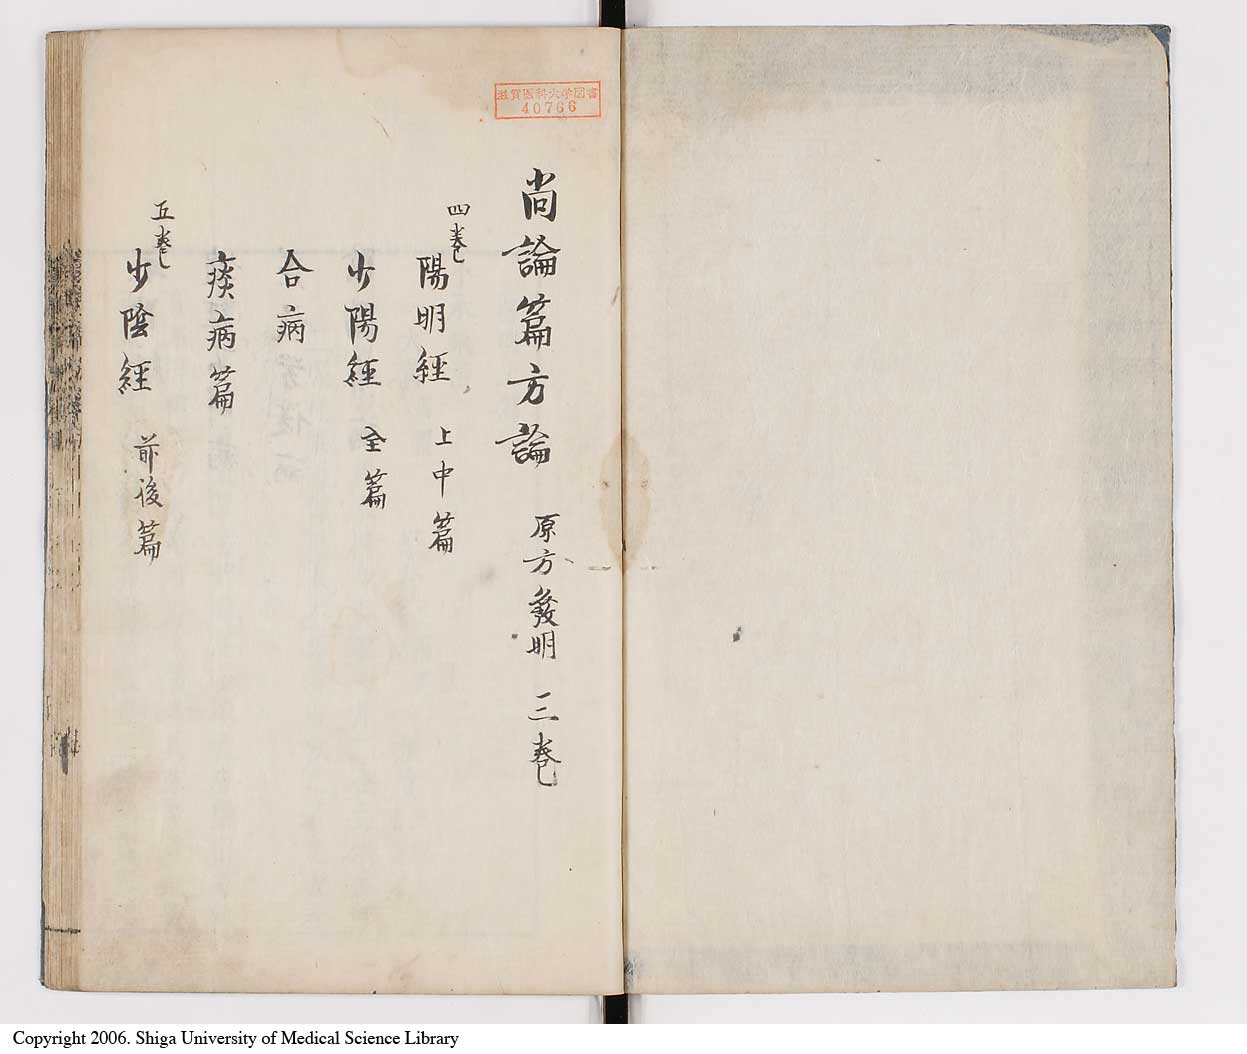 滋賀医科大学図書
40766
尚論篇方論 原方發明 三巻
四巻
陽明經 上中篇
少陽經 全篇
合病
痰病篇
五巻
少陰經 前後篇
Copyright 2006. Shiga University of Medical Science Library